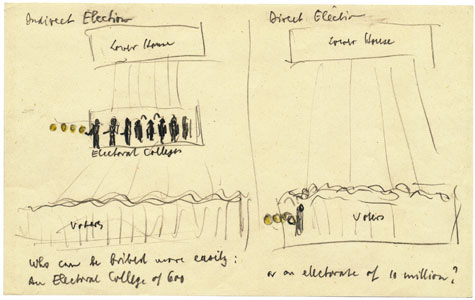 Indirect Election
Lower House
Electoral Colleges
Voters
Who can be bribed more easily:
An Electoral College of 600
Direct Election
Lower House
Voters
or an electorate of 10 million?